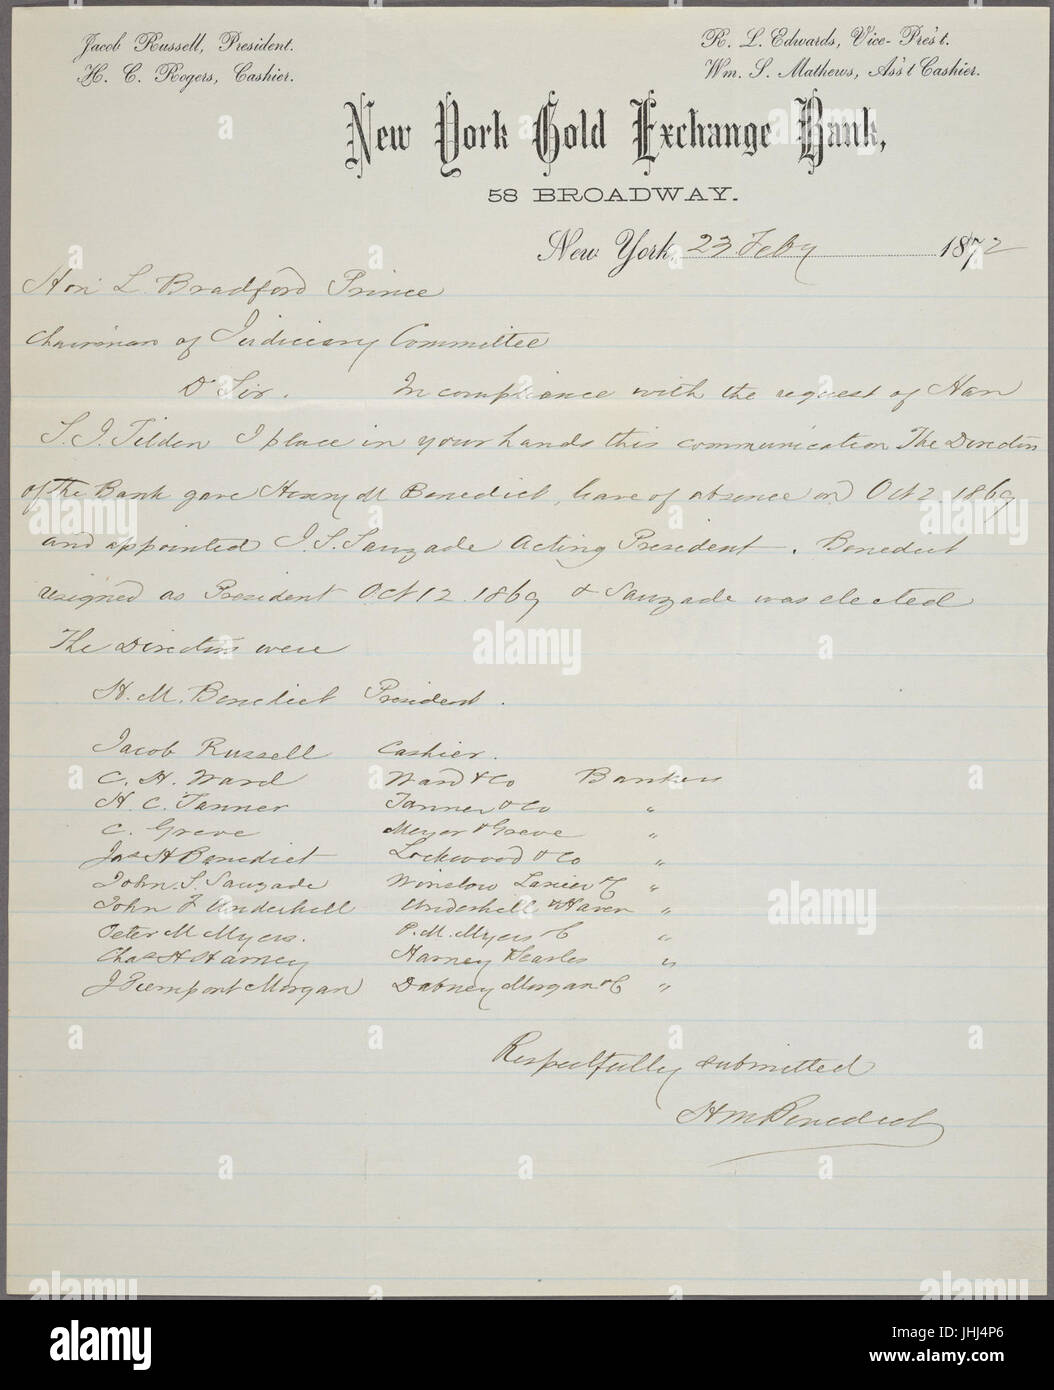 Jacob Russell, President.
H. C. Rogers, Cashier.
R. L. Edwards, Vice-Pres't.
Wm. S. Mathews, Ass't Cashier.
New York Gold Exchange Bank,
58 BROADWAY.
New York, 23 Feby 1872
Hon L. Bradford Prince
Chairman of Judiciary Committee
D Sir. In compliance with the request of Hon
S. J. Tilden I place in your hands this communication The Directors
of the Bank gave Henry M Benedict, leave of absence on Oct 2. 1869
and appointed J. S. Sauzade Acting President. Benedict
resigned as President Oct 12. 1869 & Sauzade was elected
The Directors were
H. M. Benedict President.
Jacob Russell Cashier.
C. H. Ward Ward & Co Bankers
H. C. Tanner Tanner & Co "
C. Greve Meyer & Greve "
Jas H Benedict Lockwood & Co "
John. S. Sauzade Winslow Lanier & C "
John F Underhill Underhill & Haven "
Peter M Myers. P. M. Myers & C "
Chas H Harney Harney & Searles "
J Pierpont Morgan Dabney Morgan & C "
Respectfully submitted
H M Benedict
a alamy
alamy
Image ID: JHJ4P6
www.alamy.com